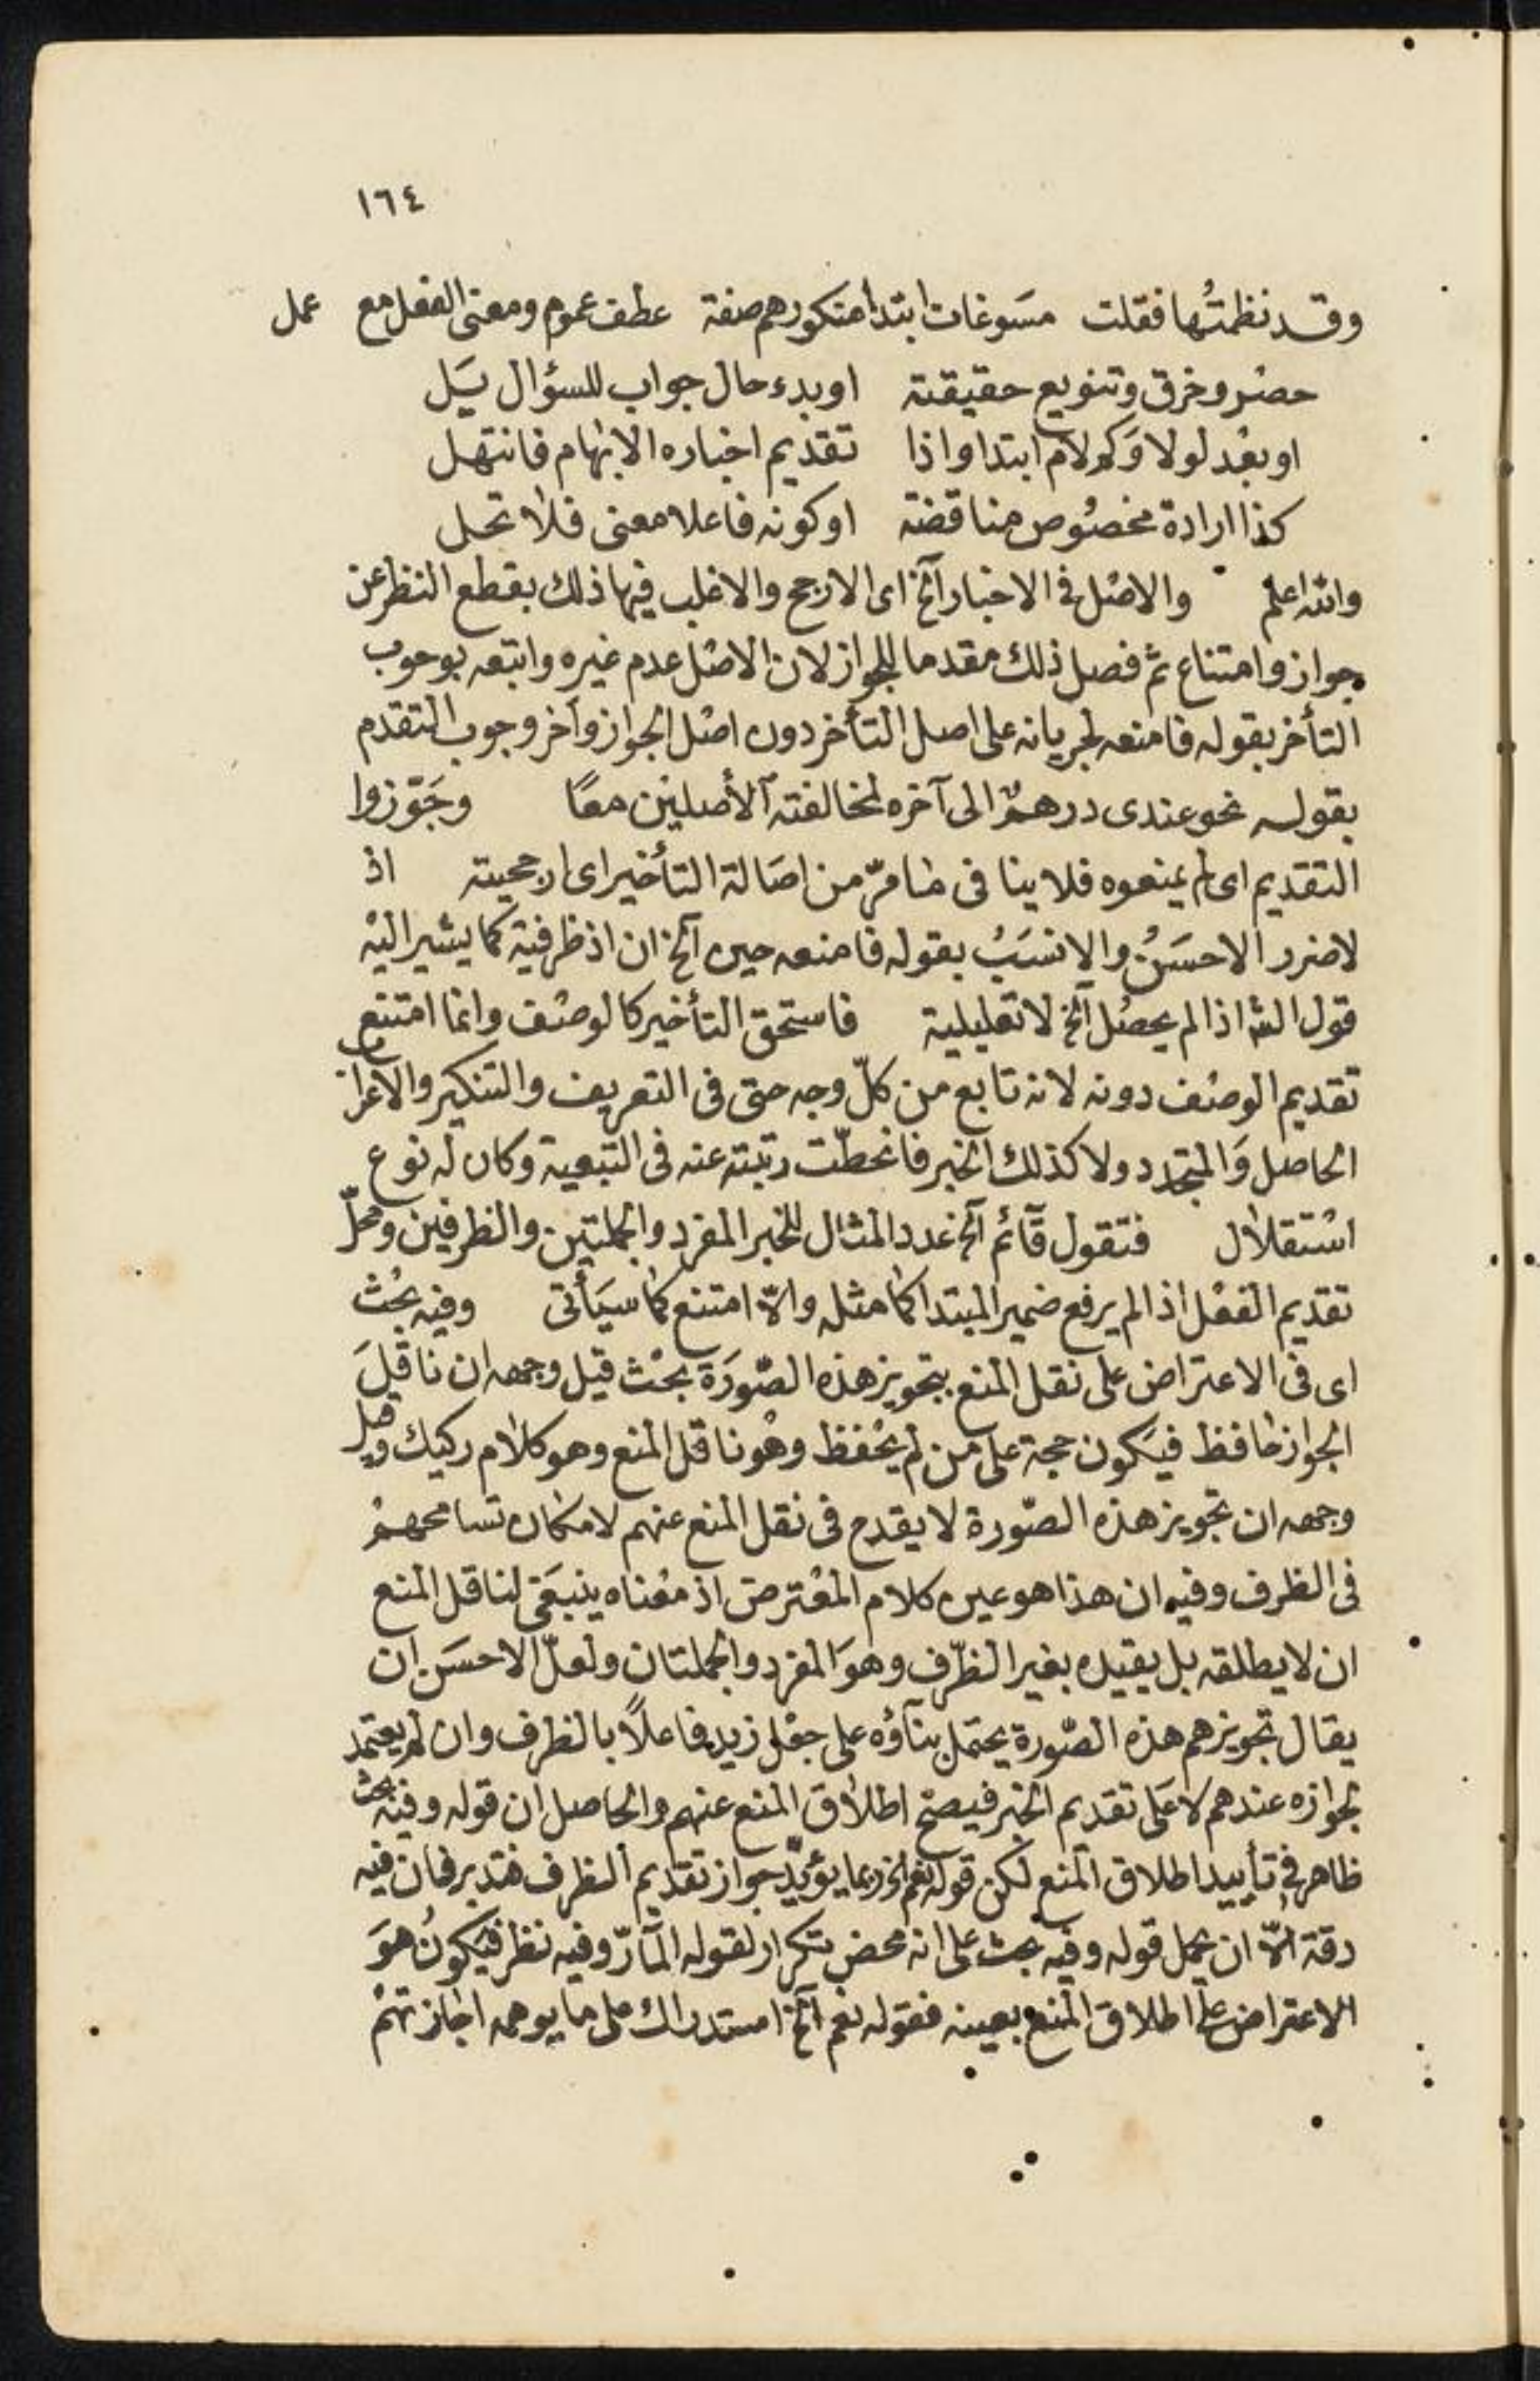 ١٦٤
وقد نظمتُها فقلت مسَوغات ابتدا منكورهم صفة عطف عموم ومعنى الفعل مع عمل
حصْر وخرق وتنويع حقيقته او بدء حال جواب للسؤال يسَل
او بعْد لولا وَكم لام ابتدا واذا تقديم اخباره الابهام فانتهل
كذا ارادة مخصُوص مناقضة او كونه فاعلا معنى فلا تحل
والله اعلم والاصْل فى الاخبار آلخ اى الارجح والاغلب فيها ذلك بقطع النظر عن
جواز وامتناع ثم فصل ذلك مقدما للجواز لان الاصْل عدم غيره واتبعه بوجوب
التأخر بقوله فامنعه لجريانه على اصل التأخر دون اصْل الجواز وآخر وجوب التقدم
بقوله نحو عندى درهمٌ الى آخره لمخالفته الأصلين معًا وجَوّزوا
التقديم اى لم يمنعوه فلا ينافى مامرّ من اصَالة التأخير اى ارجحيته اذ
لاضرر الاحسَنُ والانسَبُ بقوله فامنعه حين آلخ ان اذ ظرفية كما يشير اليْه
قول الش اذا لم يحصُل آلخ لا تعليلية فاستحق التأخير كالوصْف وانما امتنع
تقديم الوصْف دونه لانه تابع من كلّ وجه حتى فى التعريف والتنكير والاعراب
الحاصل وَالمتجدد ولا كذلك الخبر فانحطّت رتبته عنه فى التبعية وكان له نوع
اسْتقلال فتقول قآئم آلخ عدد المثال للخبر المفرد والجملتين والظرفين ومحلّ
تقديم الفعْل اذا لم يرفع ضمير المبتدا كما مثله والاّ امتنع كما سيَأتى وفيه بحْث
اى فى الاعتراض على نقل المنع بتجويز هذه الصّورَة بحْث قيل وجهه ان ناقِلَ
الجواز حافظ فيَكون حجة على من لم يحْفظ وهْو ناقل المنع وهو كلام ركيك وقيل
وجهه ان تجويز هذه الصّورة لا يقدح فى نقل المنع عنهم لامكان تسامحهمْ
فى الظرف وفيه ان هذا هو عين كلام المعْترض اذ معْناه ينبغَى لناقل المنع
ان لا يطلقه بل يقيده بغير الظّرف وهوَ المفرد والجملتان ولعلّ الاحسَن ان
يقال تجويزهم هذه الصّورة يحتمل بنآؤه على جعْل زيد فاعلاً بالظرف وان لم يعتمد
لجوازه عندهم لا عَلى تقديم الخبر فيصحّ اطلاق المنع عنهم والحاصل ان قوله وفيه بحث
ظاهر فى تأييد اطلاق المنع لكن قوله نعم آلخ ربما يؤيّد جواز تقديم الظرف فتدبر فان فيه
دقة الاّ ان يحمل قوله وفيه بحث على انه محض تكرار لقوله المآرّ وفيه نظر فيَكونُ هوَ
الاعتراض على اطلاق المنع بعينه فقوله نعم آلخ استدراك على ما يوهمه اجازتهْم